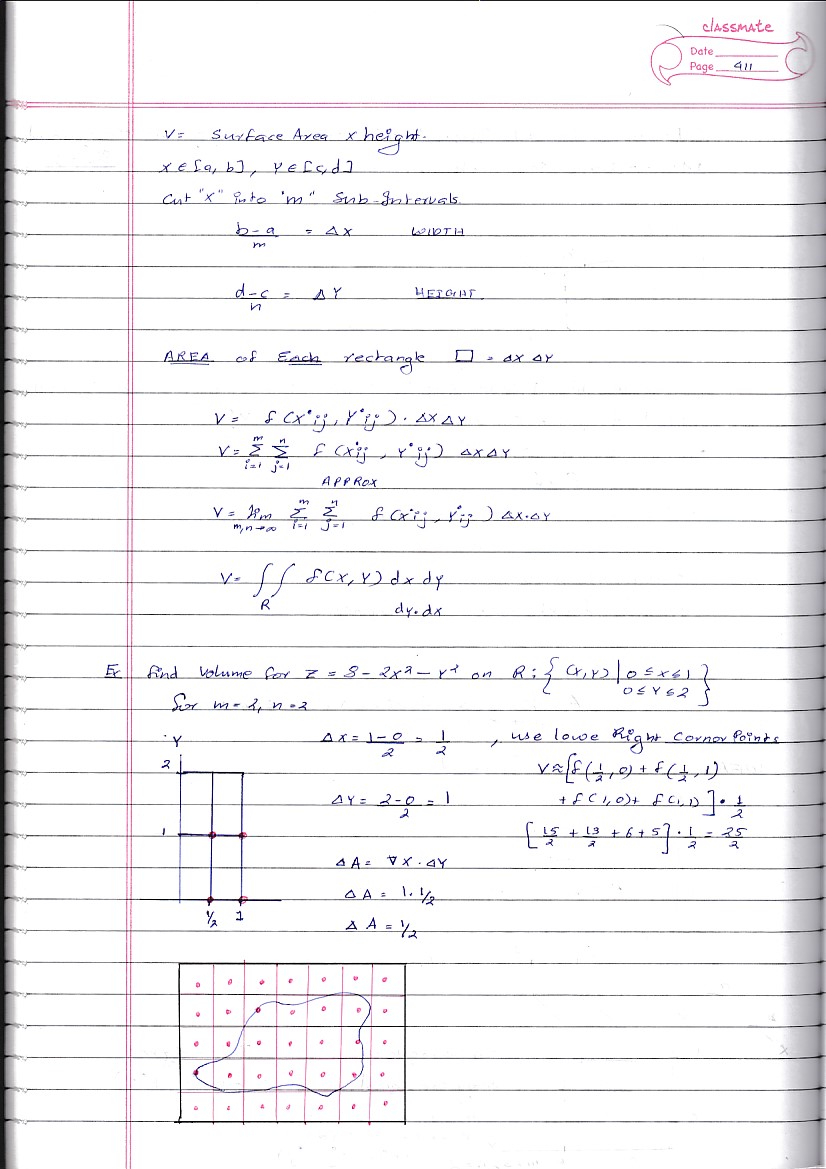 classmate
Date
Page 411
V= Surface Area x height.
x ∈ [a, b], Y ∈ [c,d]
Cut "x" into "m" Sub-Intervals
b-a/m = Δx WIDTH
d-c/n = ΔY HEIGHT.
AREA of Each rectangle □ = ΔX ΔY
V = f(x*ij, Y*ij) · ΔX ΔY
V = m Σ i=1 n Σ j=1 f(x*ij, Y*ij) ΔX ΔY
APPROX
V = lim m,n→∞ m Σ i=1 n Σ j=1 f(x*ij, Y*ij) ΔX·ΔY
V = ∫∫ R f(X, Y) dx dy
dy·dx
Ex find Volume for z = 8 - 2x² - Y² on R: {(X,Y) | 0 ≤ X ≤ 1 0 ≤ Y ≤ 2}
for m = 2, n = 2
Y ΔX = 1-0/2 = 1/2 , use lowe Right Cornor Points
2 V≈[f(1/2, 0) + f(1/2, 1)
ΔY = 2-0/2 = 1 + f(1,0) + f(1,1)] · 1/2
1 [15/2 + 13/2 + 6 + 5] · 1/2 = 25/2
ΔA = ∇X · ΔY
ΔA = 1. 1/2
1/2 1 ΔA = 1/2